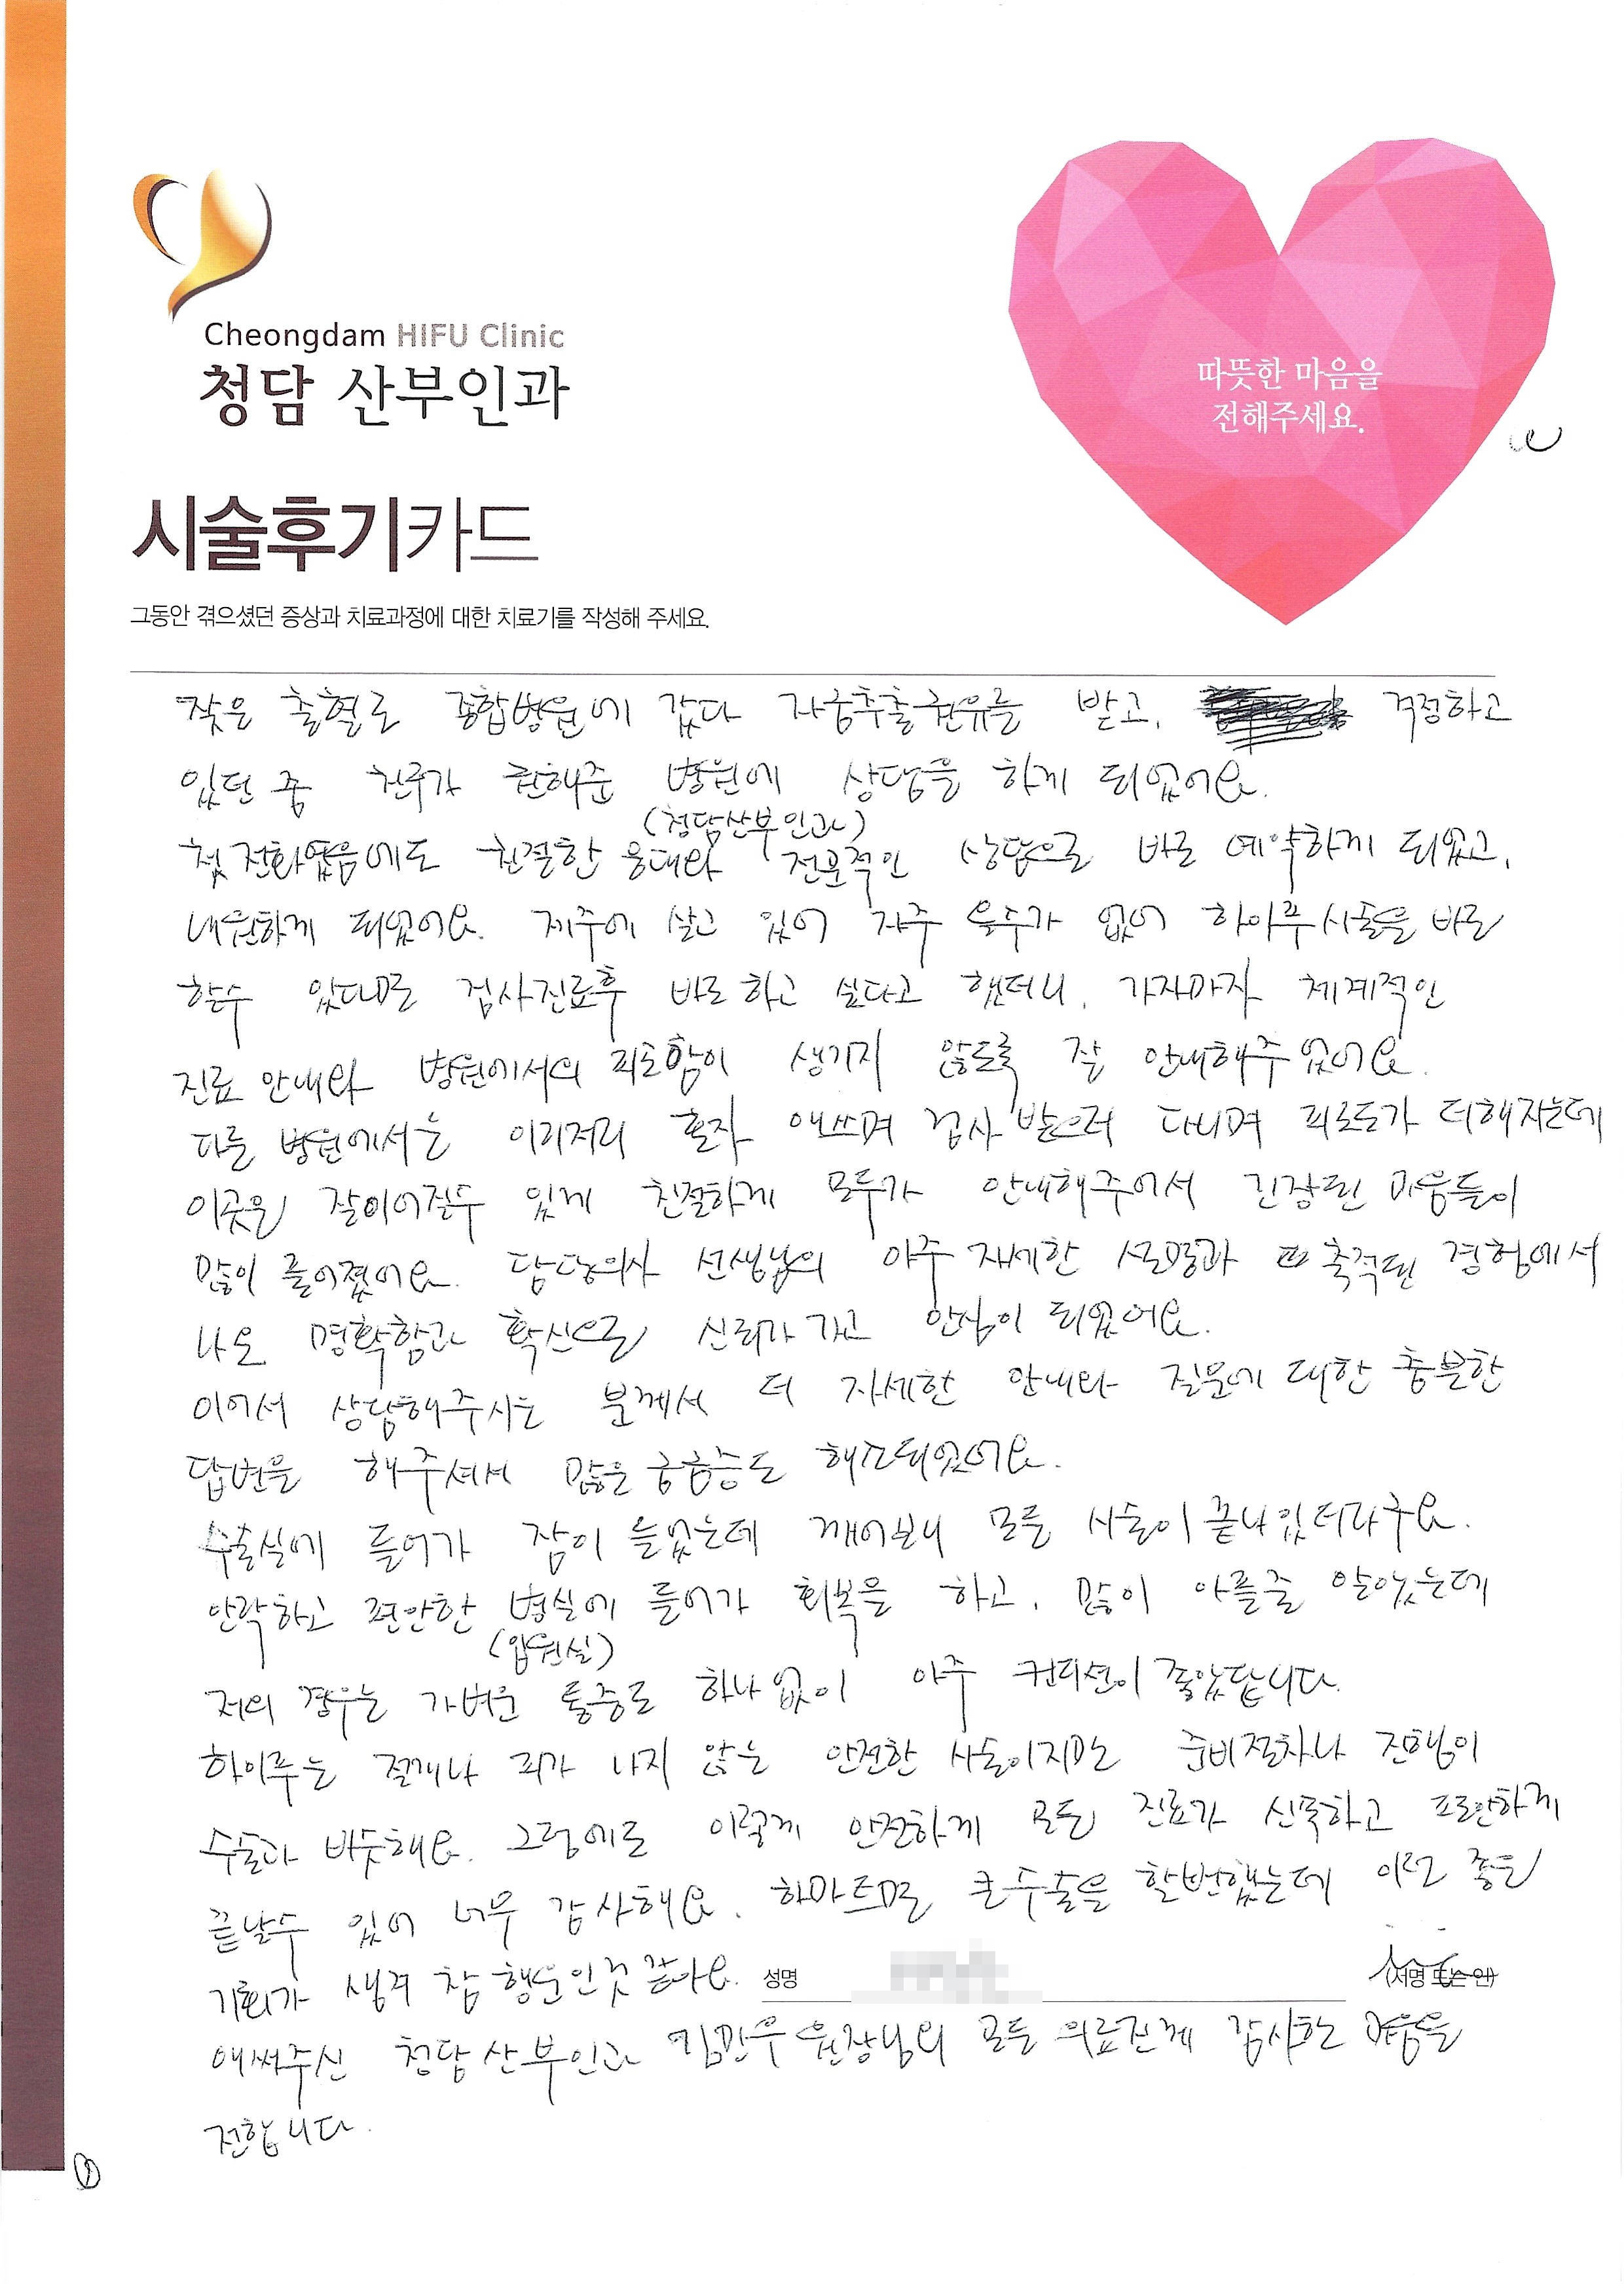 Cheongdam HIFU Clinic
청담 산부인과
따뜻한 마음을
전해주세요.
시술후기카드
그동안 겪으셨던 증상과 치료과정에 대한 치료기를 작성해 주세요.
잦은 출혈로 종합병원에 갔다 자궁추출권유를 받고, 걱정하고
있던 중 친구가 권해준 병원에 상담을 하게 되었어요.
(청담산부인과)
첫 전화였음에도 친절한 응대와 전문적인 상담으로 바로 예약하게 되었고,
내원하게 되었어요. 제주에 살고 있어 자주 올수가 없어 하이푸시술을 바로
할수 있다면 검사진료후 바로 하고 싶다고 했더니, 가자마자 체계적인
진료 안내와 병원에서의 피로함이 생기지 않도록 잘 안내해주었어요.
다른 병원에서는 이리저리 혼자 애쓰며 검사 받으러 다니며 피로도가 더해지는데
이곳은 잘이어질수 있게 친절하게 모두가 안내해주어서 긴장된 마음들이
많이 풀어졌어요. 담당의사 선생님의 아주 자세한 설명과 축적된 경험에서
나온 명확함과 확신으로 신뢰가 가고 안심이 되었어요.
이어서 상담해주시는 분께서 더 자세한 안내와 질문에 대한 충분한
답변을 해주셔서 많은 궁금증도 해소되었어요.
수술실에 들어가 잠이 들었는데 깨어보니 모든 시술이 끝나있더라구요.
안락하고 편안한 병실에 들어가 회복을 하고, 많이 아플줄 알았는데
(입원실)
저의 경우는 가벼운 통증도 하나 없이 아주 컨디션이 좋았답니다.
하이푸는 절개나 피가 나지 않는 안전한 시술이지만 준비절차나 진행이
수술과 비슷해요. 그럼에도 이렇게 안전하게 모든 진료가 신속하고 편안하게
끝날수 있어 너무 감사해요. 하마트면 큰수술을 할뻔했는데 이런 좋은
기회가 생겨 참 행운인것 같아요. 성명 (서명 또는 인)
애써주신 청담산부인과 김민우 원장님외 모든 의료진께 감사한 마음을
전합니다.